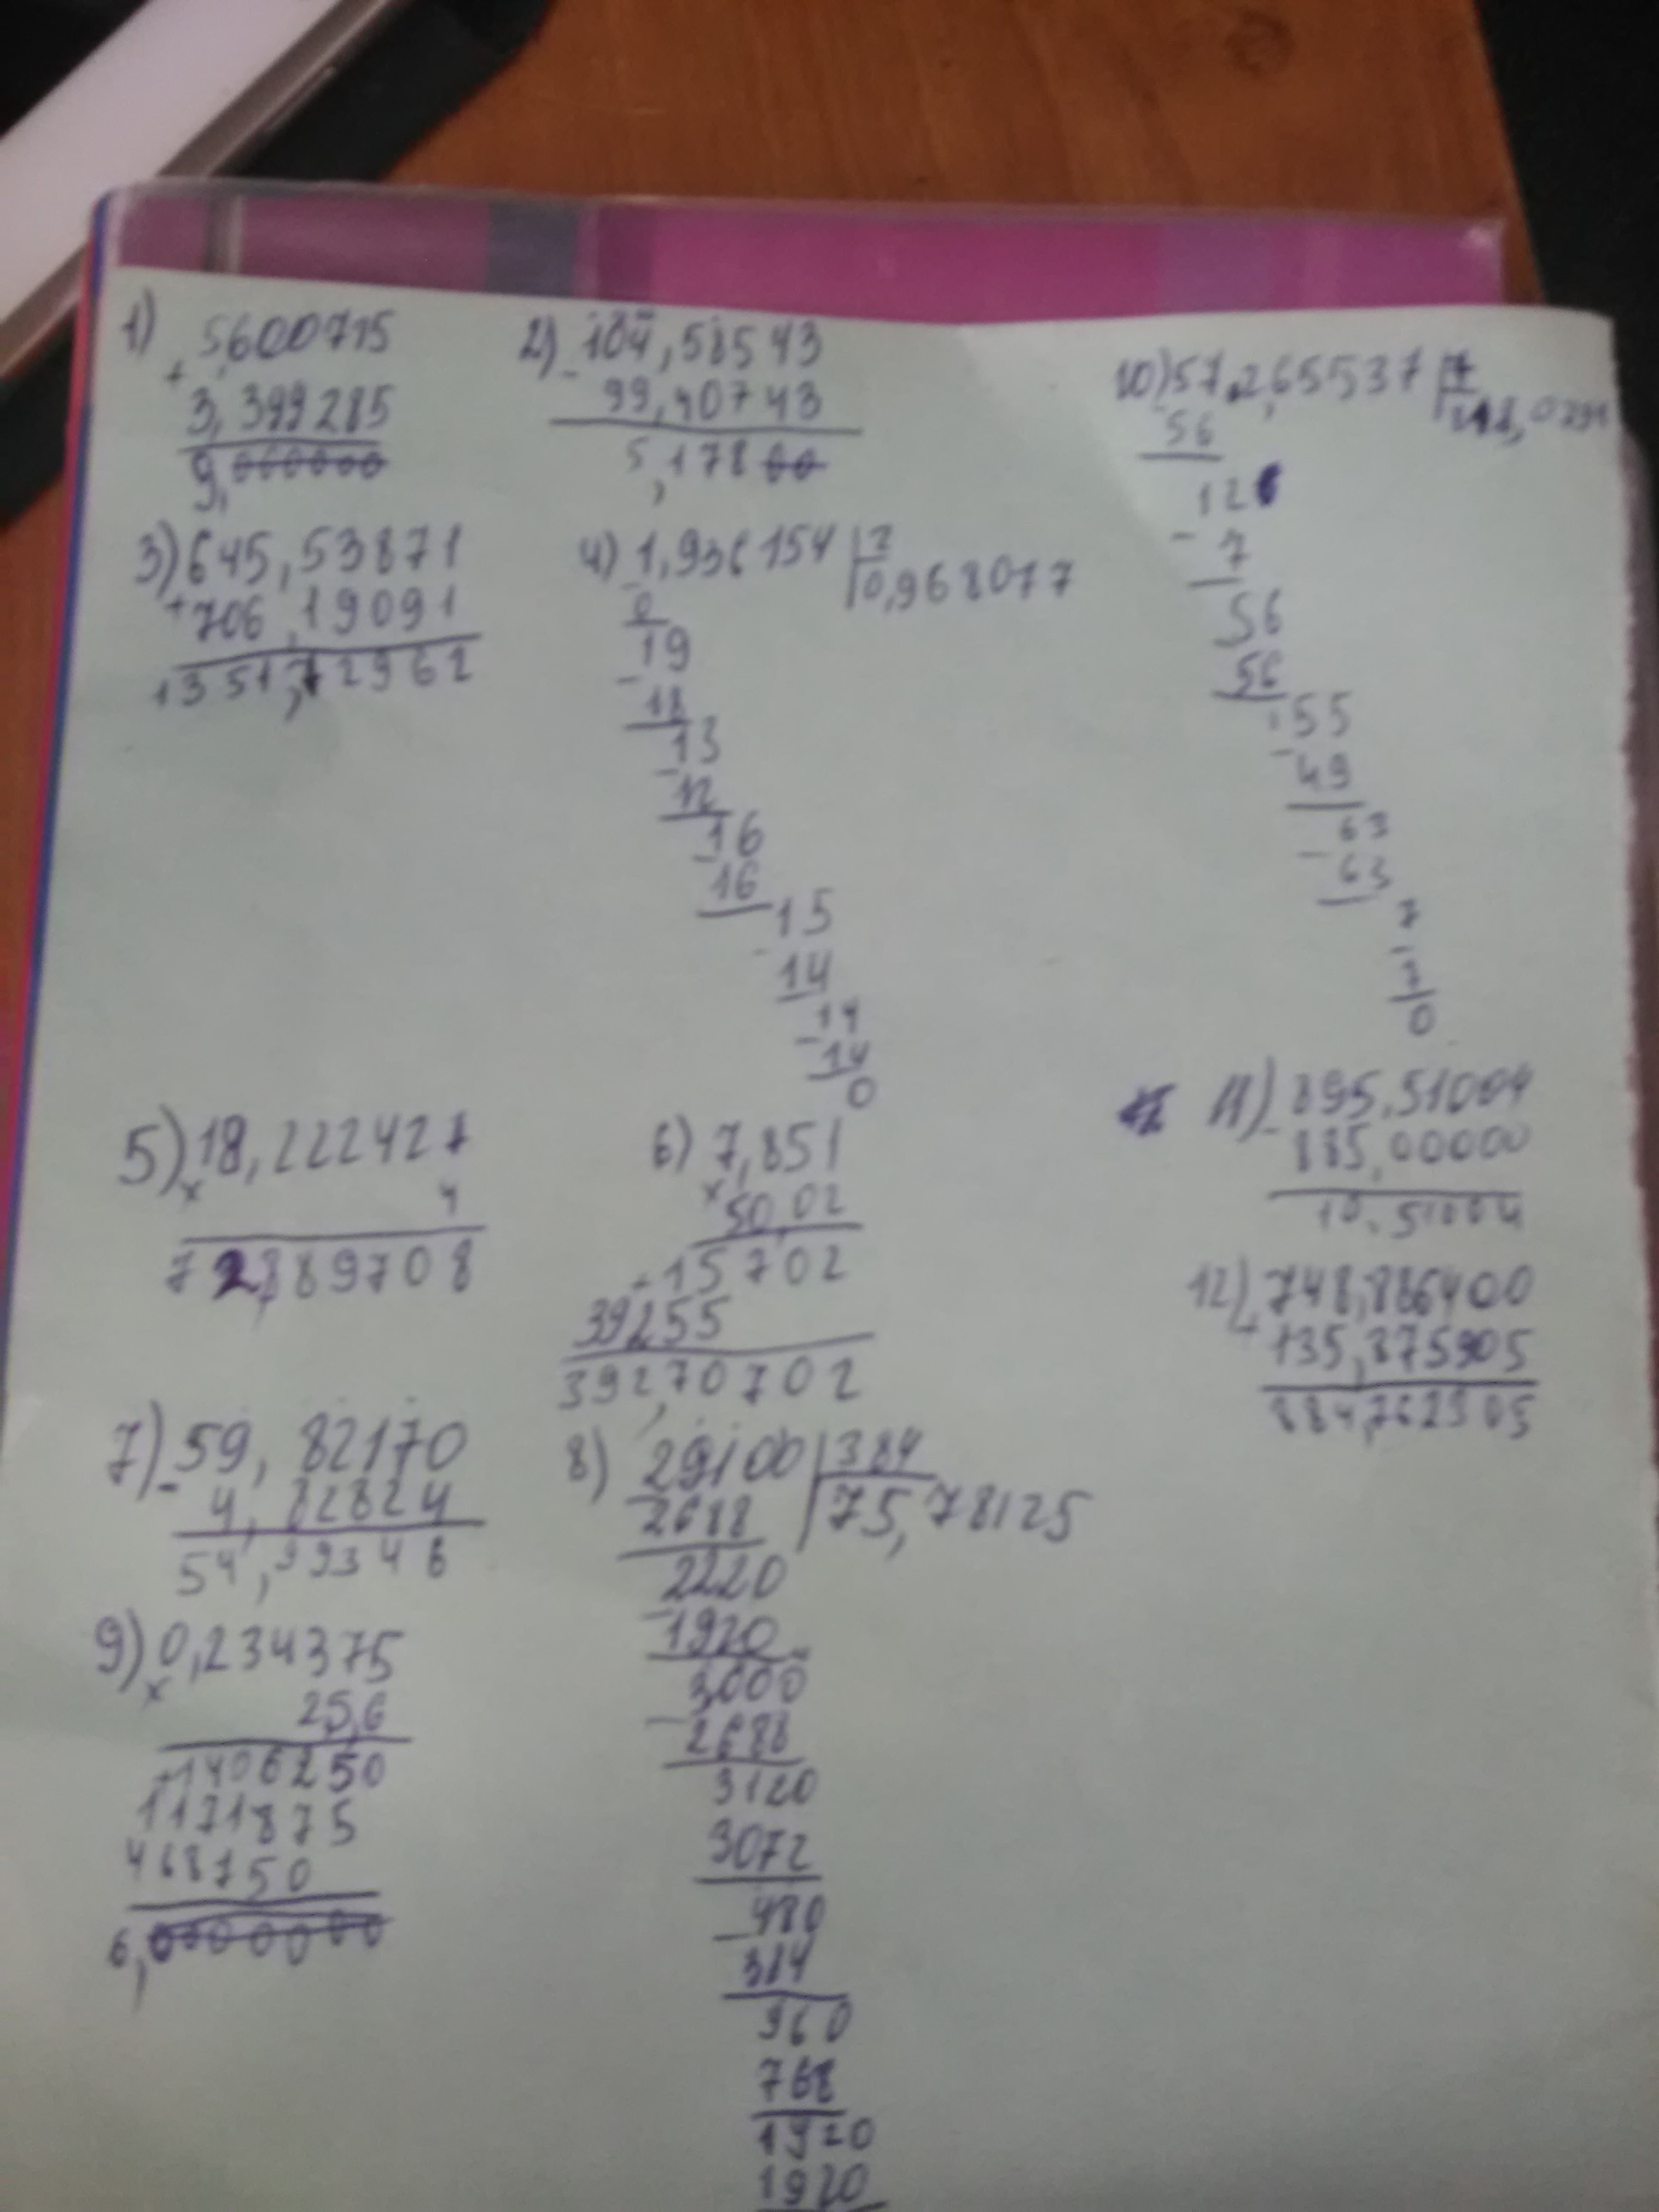 1) 5,600715
+
3,399285
9,000000
2) - 104,58543
99,40743
5,17800
3) 645,53871
+ 706,19091
1351,72962
4) 1,936154 | 2
0,968077
0
19
- 18
13
- 12
16
- 16
15
- 14
14
- 14
0
5) 18,222427
x 4
72,889708
6) 7,851
x 50,02
+ 15702
39255
392,70702
7) - 59,82170
4,82824
54,99346
8) 29100 | 384
75,78125
2688
2220
- 1920
3000
- 2688
3120
3072
480
- 384
960
768
1920
1920
9) 0,234375
x 25,6
+ 1406250
1171875
468750
6,0000000
10) 57,265537 | 7
56
12
- 7
56
56
55
- 49
63
- 63
7
- 7
0
11) - 895,51004
885,00000
10,51004
12) 748,886400
+ 135,875905
884,762305